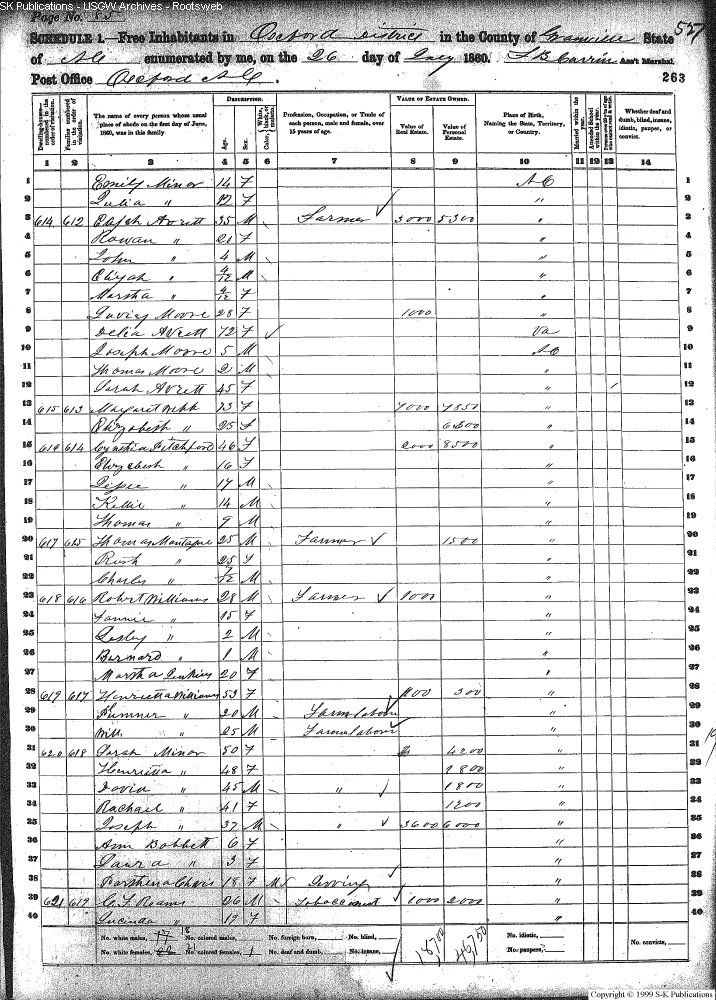 SK Publications - USGW Archives - Rootsweb
Page No. 85
SCHEDULE 1.—Free Inhabitants in Oxford District in the County of Granville State
of N C enumerated by me, on the 26 day of July 1860. Ass't Marshal.
527
Post Office Oxford N C
263
Dwelling-houses— numbered in the order of visitation.
Families numbered in the order of visitation.
The name of every person whose usual place of abode on the first day of June, 1860, was in this family.
DESCRIPTION.
Age.
Sex.
Color,
Profession, Occupation, or Trade of each person, male and female, over 15 years of age.
VALUE OF ESTATE OWNED.
Value of Real Estate.
Value of Personal Estate.
Place of Birth, Naming the State, Territory, or Country.
Married within the year.
Attended School within the year.
Whether deaf and dumb, blind, insane, idiotic, pauper, or convict.
1 2 3 4 5 6 7 8 9 10 11 12 13 14
1 Emily Minor 14 F N C 1
2 Julia " 12 F " 2
3 614 612 Avrett 35 M Farmer 3000 5300 " 3
4 Rowan " 21 F " 4
5 John " 4 M " 5
6 Elijah " 4/12 M " 6
7 Martha " 4/12 F " 7
8 Moore 28 F 1000 " 8
9 Delia Avrett 72 F Va 9
10 Joseph Moore 5 M N C 10
11 Thomas Moore 2 M " 11
12 Sarah Avrett 45 F " 12
13 615 613 Margaret Webb 73 F 7850 " 13
14 Elizabeth " 25 F " 14
15 616 614 Cynthia 46 F 2000 8500 " 15
16 Elizabeth " 16 F " 16
17 " 17 M " 17
18 " 14 M " 18
19 Thomas " 9 M " 19
20 617 615 Thomas Montague 25 M Farmer 1500 " 20
21 Ruth " 25 F " 21
22 Charles " M " 22
23 618 616 Robert Williams 28 M Farmer " 23
24 Fannie " 15 F " 24
25 " 2 M " 25
26 Bernard " 1 M " 26
27 Martha Jenkins 20 F " 27
28 619 617 Henrietta Williams 53 F 300 " 28
29 Sumner " 20 M Farm labor " 29
30 Will. " 25 M Farm labor " 30
31 620 618 Sarah Minor 50 F 4200 " 31
32 Henrietta " 48 F 1800 " 32
33 David " 45 M " 1800 " 33
34 Rachael " 41 F 1200 " 34
35 Joseph " 37 M " 3600 6000 " 35
36 Ann Bobbett 6 F " 36
37 Laura " 3 F " 37
38 18 F M " 38
39 621 619 Reams 26 M Tobacconist 1000 2000 " 39
40 Lucinda " 17 F " 40
No. white males, No. colored males, No. foreign born, No. blind, No. idiotic, No. convicts,
No. white females, No. colored females, 1 No. deaf and dumb, No. insane, No. paupers,
Copyright © 1999 S-K Publications